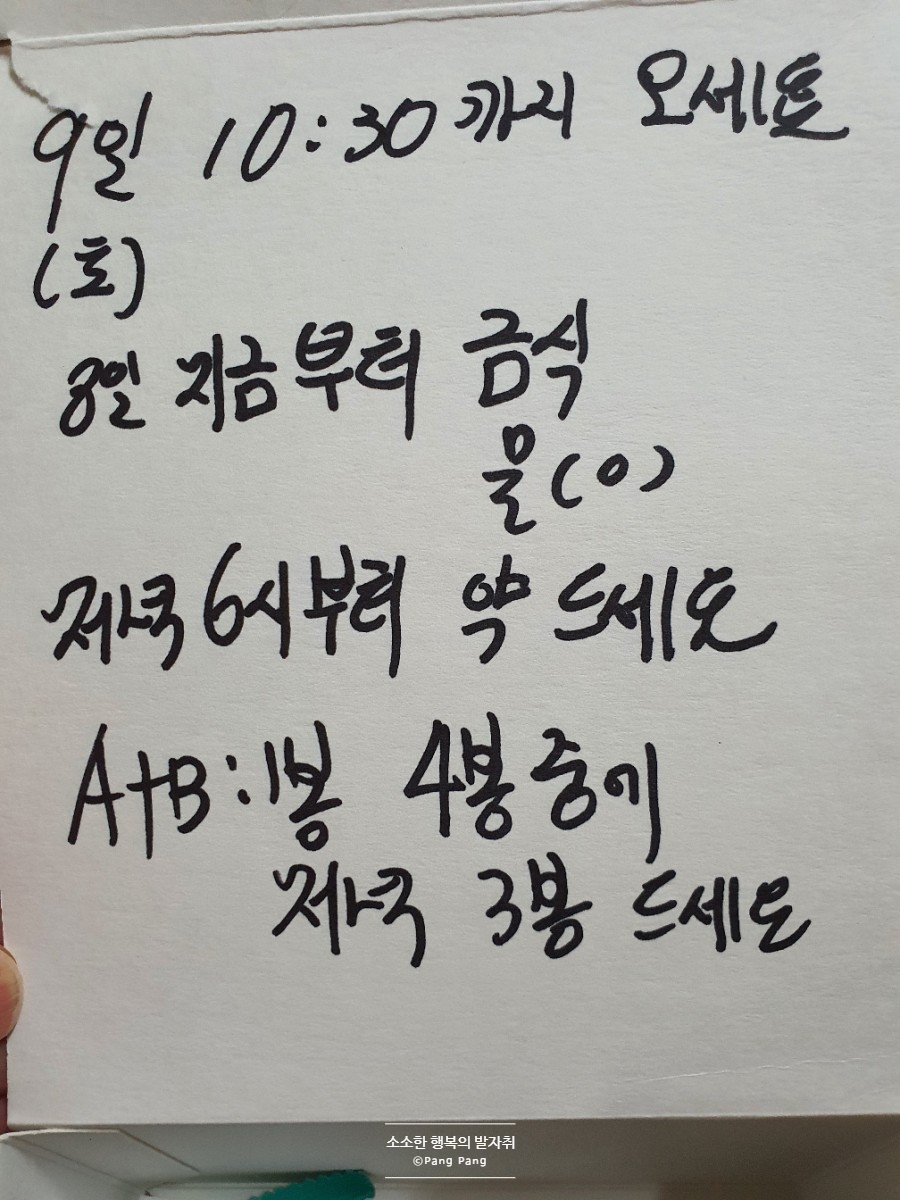 9일 10:30까지 오세요
(토)
8일 지금부터 금식
물(o)
저녁 6시부터 약 드세요
A+B:1봉 4봉중에
저녁 3봉 드세요
소소한 행복의 발자취
©Pang Pang